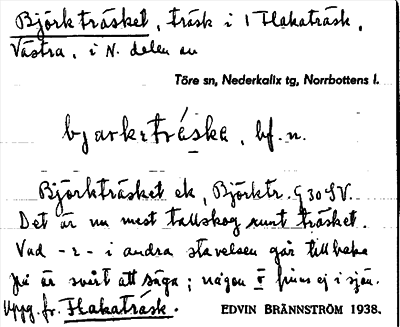 Björkträsket, träsk i 1 Flakaträsk,
Västra, i N. delen av
Töre sn, Nederkalix tg, Norrbottens l.
bjarkɛtráskɛ, bf. n.
Björkträsket ek, Björktr. G 30 SV.
Det är nu mest tallskog runt träsket.
Vad -ɛ- i andra stavelsen går tillbaka
på är svårt att säga; någon finns ej i sjön.
Uppg. fr. Flakaträsk. EDVIN BRÄNNSTRÖM 1938.